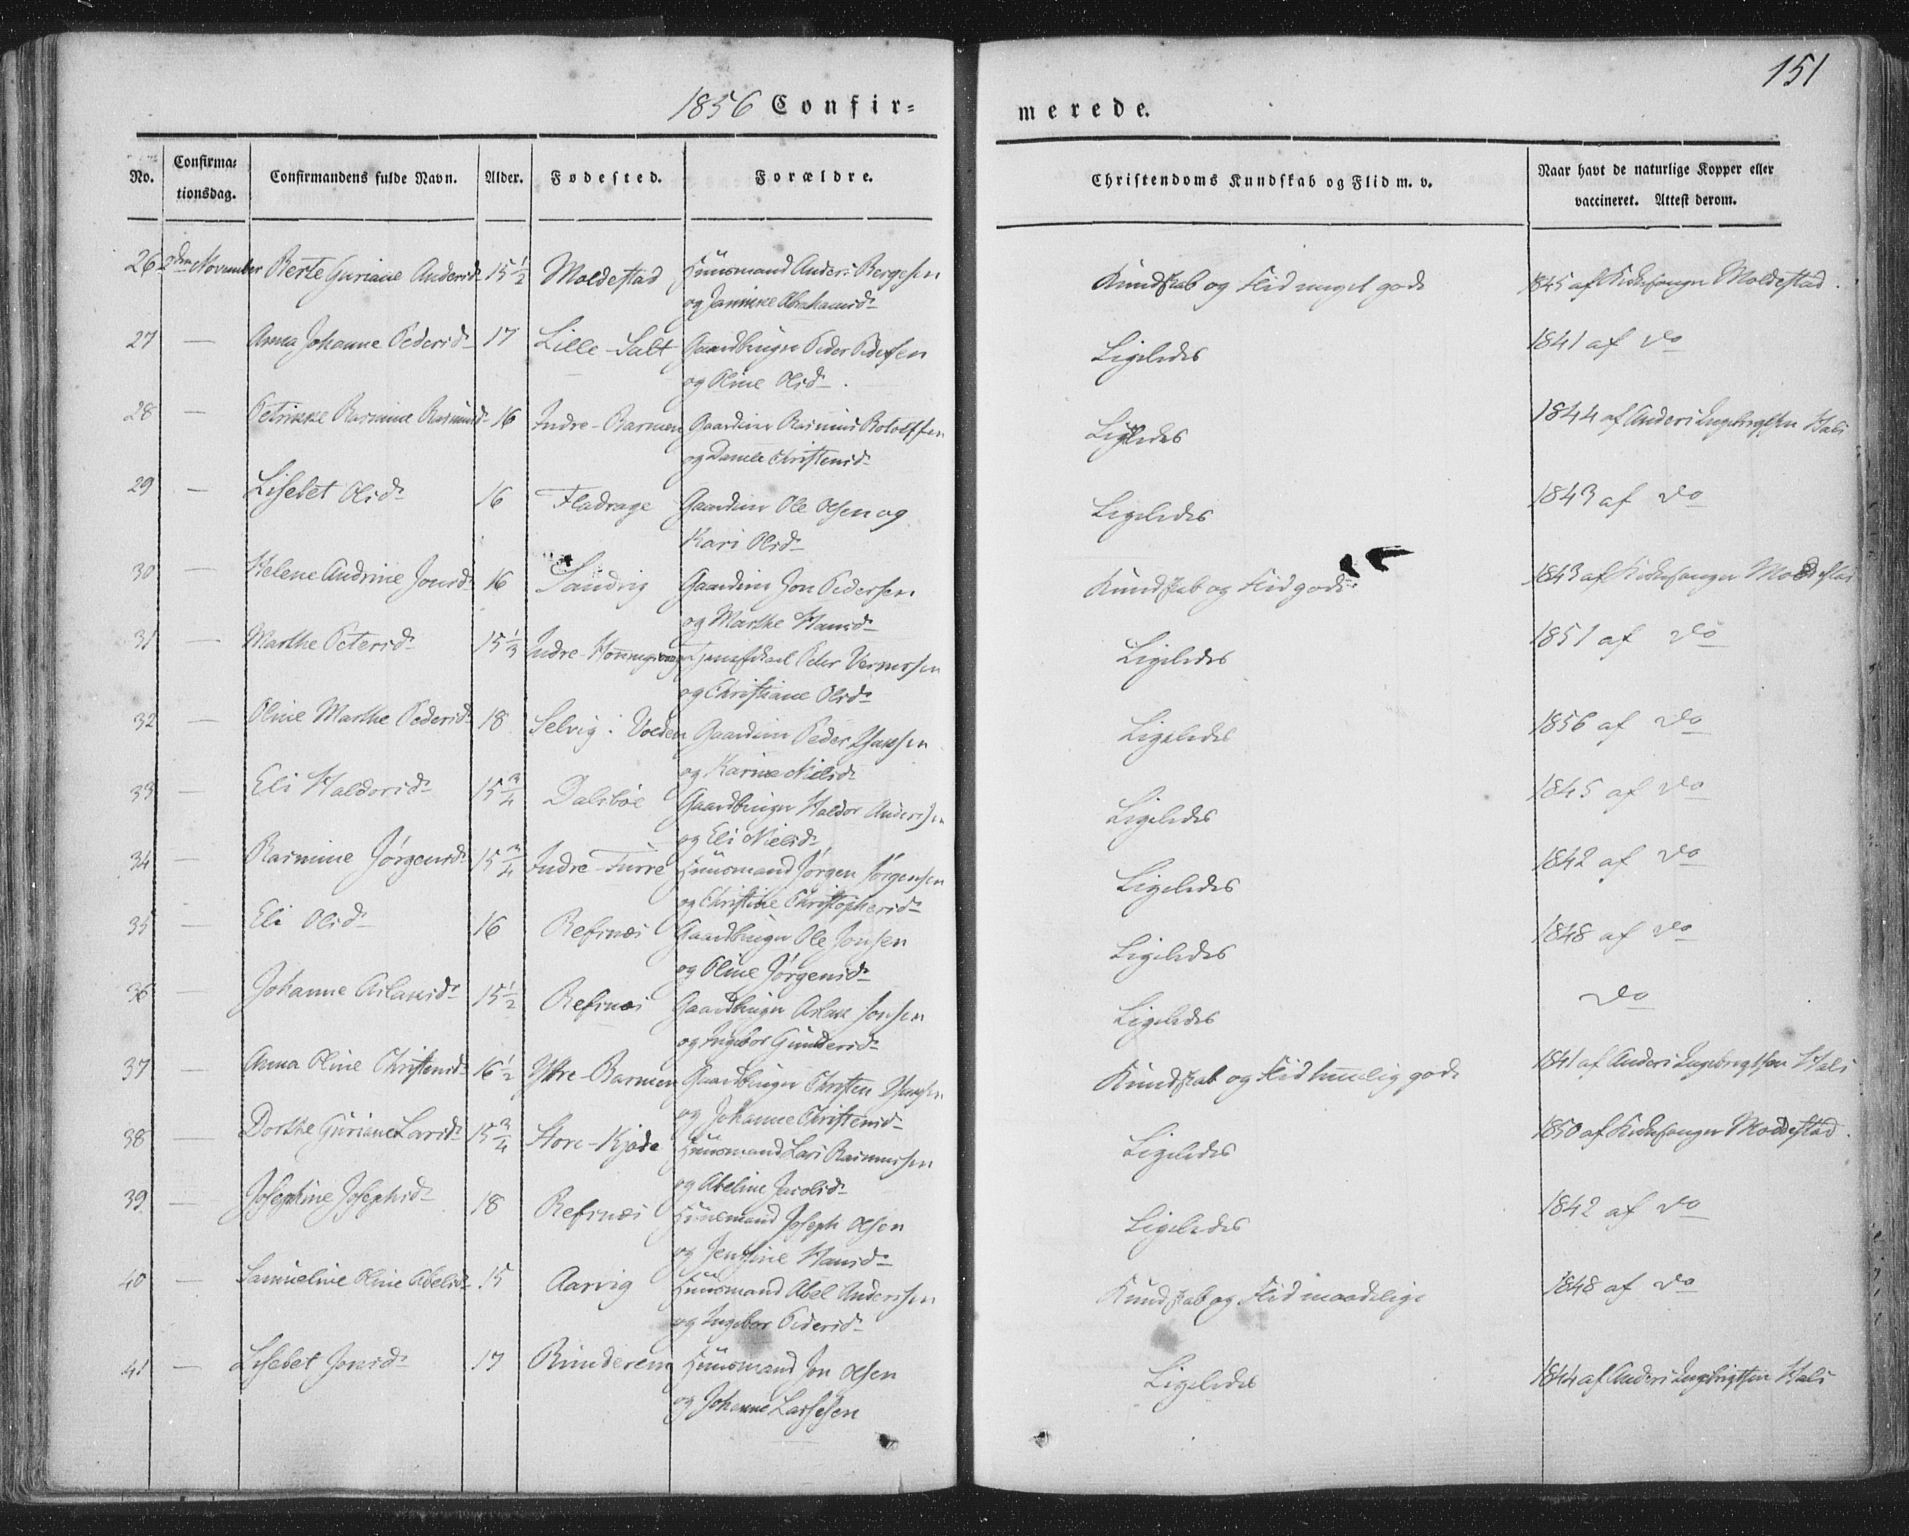 151
1856 Confir=
merede.
No. Confirma=tionsdag. Confirmandens fulde Navn. Alder. Fødested. Forældre. Christendoms Kundskab og Flid m. v. Naar havt de naturlige Kopper eller vaccineret. Attest derom.
26 November Berte Guriane Andersd. 15 1/2 Moldestad Huusmand Anders Bergesen Kundskab og Flid meget gode 1845 af Kirkesanger Moldestad.
og Jannike Abrahamsd.
27 — Anna Johanne Pedersd. 17 Lille-Salt Gaardbruger Peder Pedersen Ligeledes 1841 af do
og Oline Olsd.
28 — Petrikke Rasmine Rasmusd. 16 Indre-Barmen Gaardm. Rasmus Ligeledes 1844 af Anders Ingebrigtsen Hals
og Christensd.
29 — Lisebet Olsd. 16 Fladrage Gaardm. Ole Olsen og Ligeledes 1843 af do
Kari Olsd.
30 — Helene Andrine Jonsd. 16 Sandvig Gaardm. Jon Pedersen Kundskab og Flid gode 1843 af Kirkesanger Moldestad
og Marthe Hansd.
31 — Marthe Petersd. 15 1/3 Indre- Peder Ligeledes 1851 af do
og Christiane Olsd.
32 — Oline Marthe Pedersd. 18 Selvig i Gaardm. Peder Ligeledes 1856 af do
og Karine Nielsd.
33 — Eli Haldorsd. 15 3/4 Dalsbøe Gaardbruger Haldor Andersen Ligeledes 1845 af do
og Eli Nielsd.
34 — Rasmine Jørgensd. 15 3/4 Indre-Furre Huusmand Jørgen Jørgensen Ligeledes 1842 af do
og Christine Christophersd.
35 — Eli Olsd. 16 Refsnæs Gaardbruger Ole Jonsen Ligeledes 1848 af do
og Oline Jørgensd.
36 — Johanne Aslaksd. 15 1/2 Refsnæs Gaardbruger Aslak Jonsen Ligeledes do
og Ingebor Gundersd.
37 — Anna Oline Christensd. 16 1/2 Ytre-Barmen Gaardbruger Christen Kundskab og Flid temmelig gode 1841 af Anders Ingebrigtsen Hals
og Johanne Christensd.
38 — Dorthe Guriane Larsd. 15 3/4 Store-Kjøde Huusmand Lars Rasmussen Ligeledes 1850 af Kirkesanger Moldestad.
og Abeline Jacobsd.
39 — Josephine Josephsd. 18 Refsnæs Huusmand Joseph Olsen Ligeledes 1842 af do
og Jensine Hansd.
40 — Samueline Oline Abelsd. 15 Aarvig Huusmand Abel Andersen Kundskab og Flid maadelige 1848 af do
og Ingebor Pedersd.
41 — Lisebet Jonsd. 17 Runderem Huusmand Jon Olsen Ligeledes 1844 af Anders Ingebrigtsen Hals
og Johanne Larssen